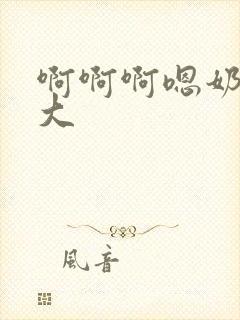 啊啊啊嗯奶
大
風音